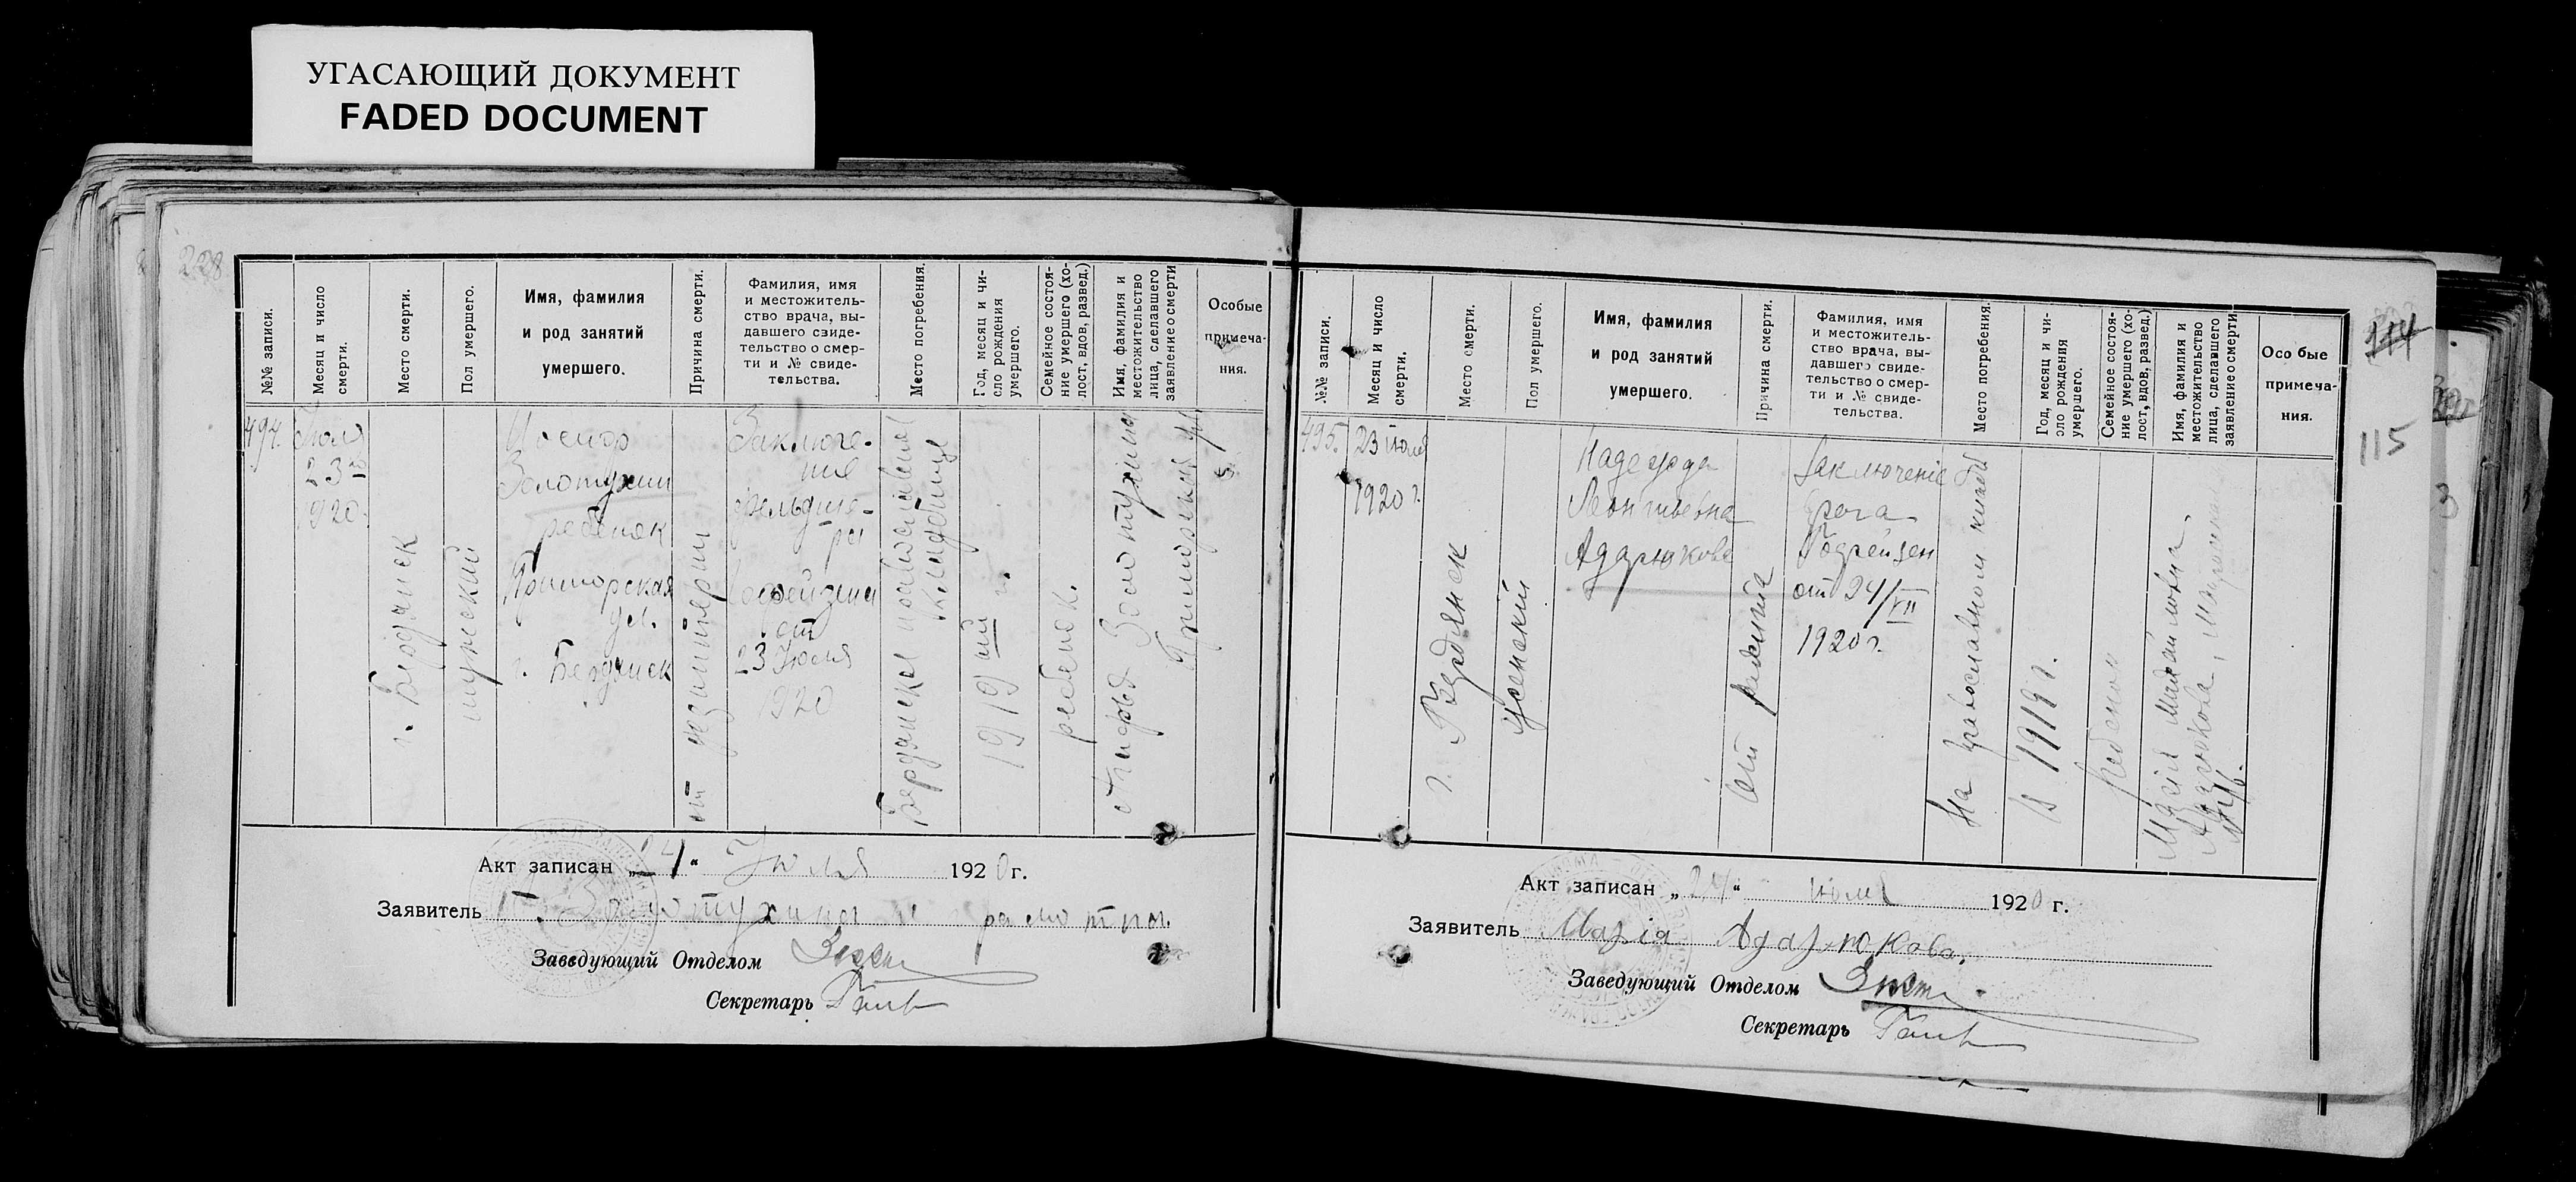 УГАСАЮЩИЙ ДОКУМЕНТ
FADED DOCUMENT
228
№№ записи.
Месяц и число
смерти.
Место смерти.
Пол умершего.
Имя, фамилия
и род занятий
умершего.
Причина смерти.
Фамилия, имя
и местожитель-
ство врача, вы-
давшего свиде-
тельство о смер-
ти и № свиде-
тельства.
Место погребения.
Год, месяц и чи-
сло рождения
умершего.
Семейное состоя-
ние умершего (хо-
лост, вдов, развед.)
Имя, фамилия и
местожительство
лица, сделавшего
заявление о смерти
Особые
примеча-
ния.
494.
Июля
23
1920.
г. Бердянск
мужской
Золотухин
ребенок
Приморская
ул.
г. Бердянск
от дизинтерии
Заключе-
ние
фельдше-
ра
от
23 Июля
1920
Бердянск православное
кладбище
1919 г.
ребенок.
Золотухина
Приморская ул.
Акт записан „24“ Июля 1920 г.
Заявитель Золотухина
Заведующий Отделом
Секретарь
№№ записи.
Месяц и число
смерти.
Место смерти.
Пол умершего.
Имя, фамилия
и род занятий
умершего.
Причина смерти.
Фамилия, имя
и местожитель-
ство врача, вы-
давшего свиде-
тельство о смер-
ти и № свиде-
тельства.
Место погребения.
Год, месяц и чи-
сло рождения
умершего.
Семейное состоя-
ние умершего (хо-
лост, вдов, развед.)
Имя, фамилия и
местожительство
лица, сделавшего
заявление о смерти
Особые
примеча-
ния.
114
115
495.
23 июля
1920 г.
г. Бердянск
женский
Надежда
Леонтьевна
Адарюкова
От
Заключеніе
врача
от 24/VII
1920 г.
На православном кладб
В 1919 г.
ребенок
Марія Михайловна
Адарюкова,
Акт записан „24“ июля 1920 г.
Заявитель Марія Адарюкова.
Заведующий Отделом
Секретарь